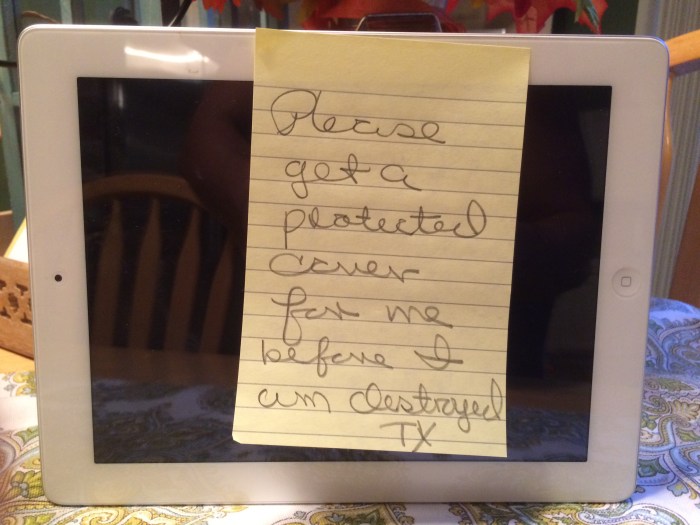 Please
get a
protected
cover
for me
before I
am destroyed
TX